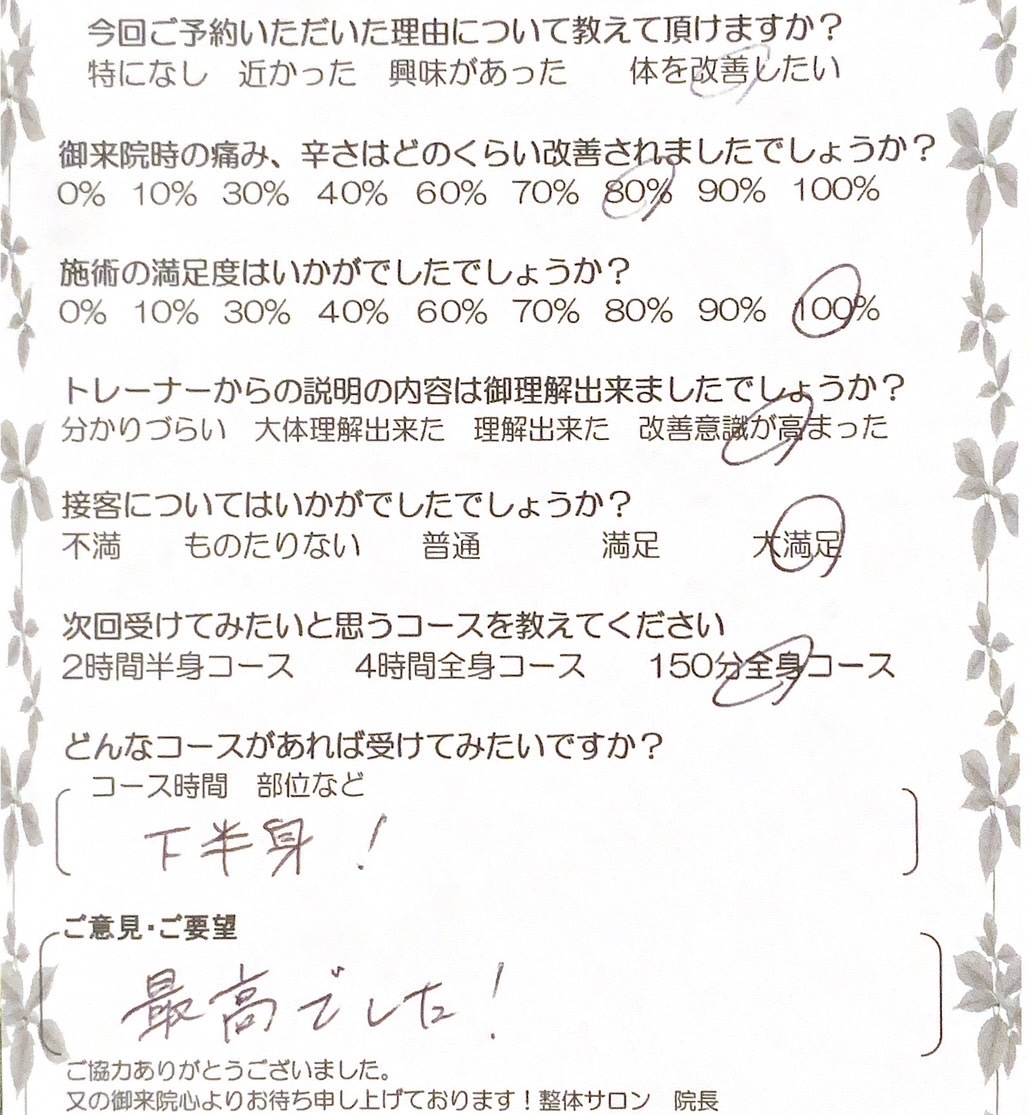 今回ご予約いただいた理由について教えて頂けますか？
特になし 近かった 興味があった 体を改善したい
御来院時の痛み、辛さはどのくらい改善されましたでしょうか？
0% 10% 30% 40% 60% 70% 80% 90% 100%
施術の満足度はいかがでしたでしょうか？
0% 10% 30% 40% 60% 70% 80% 90% 100%
トレーナーからの説明の内容は御理解出来ましたでしょうか？
分かりづらい 大体理解出来た 理解出来た 改善意識が高まった
接客についてはいかがでしたでしょうか？
不満 ものたりない 普通 満足 大満足
次回受けてみたいと思うコースを教えてください
2時間半身コース 4時間全身コース 150分全身コース
どんなコースがあれば受けてみたいですか？
コース時間 部位など
下半身！
ご意見・ご要望
最高でした！
ご協力ありがとうございました。
又の御来院心よりお待ち申し上げております！整体サロン 院長